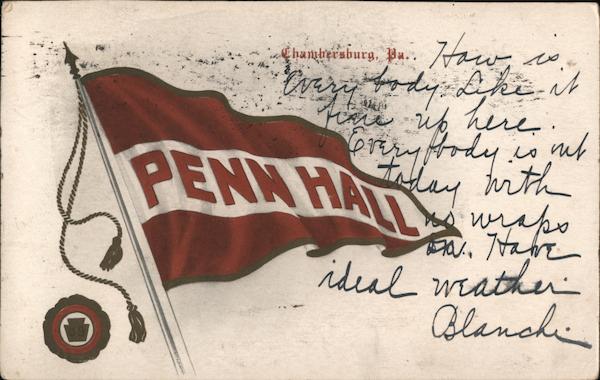 Chambersburg, Pa.
How is
Every body. Like it
fine up here.
Everybody is out
today with
no wraps
on. Have
ideal weather.
Blanche.
PENN HALL